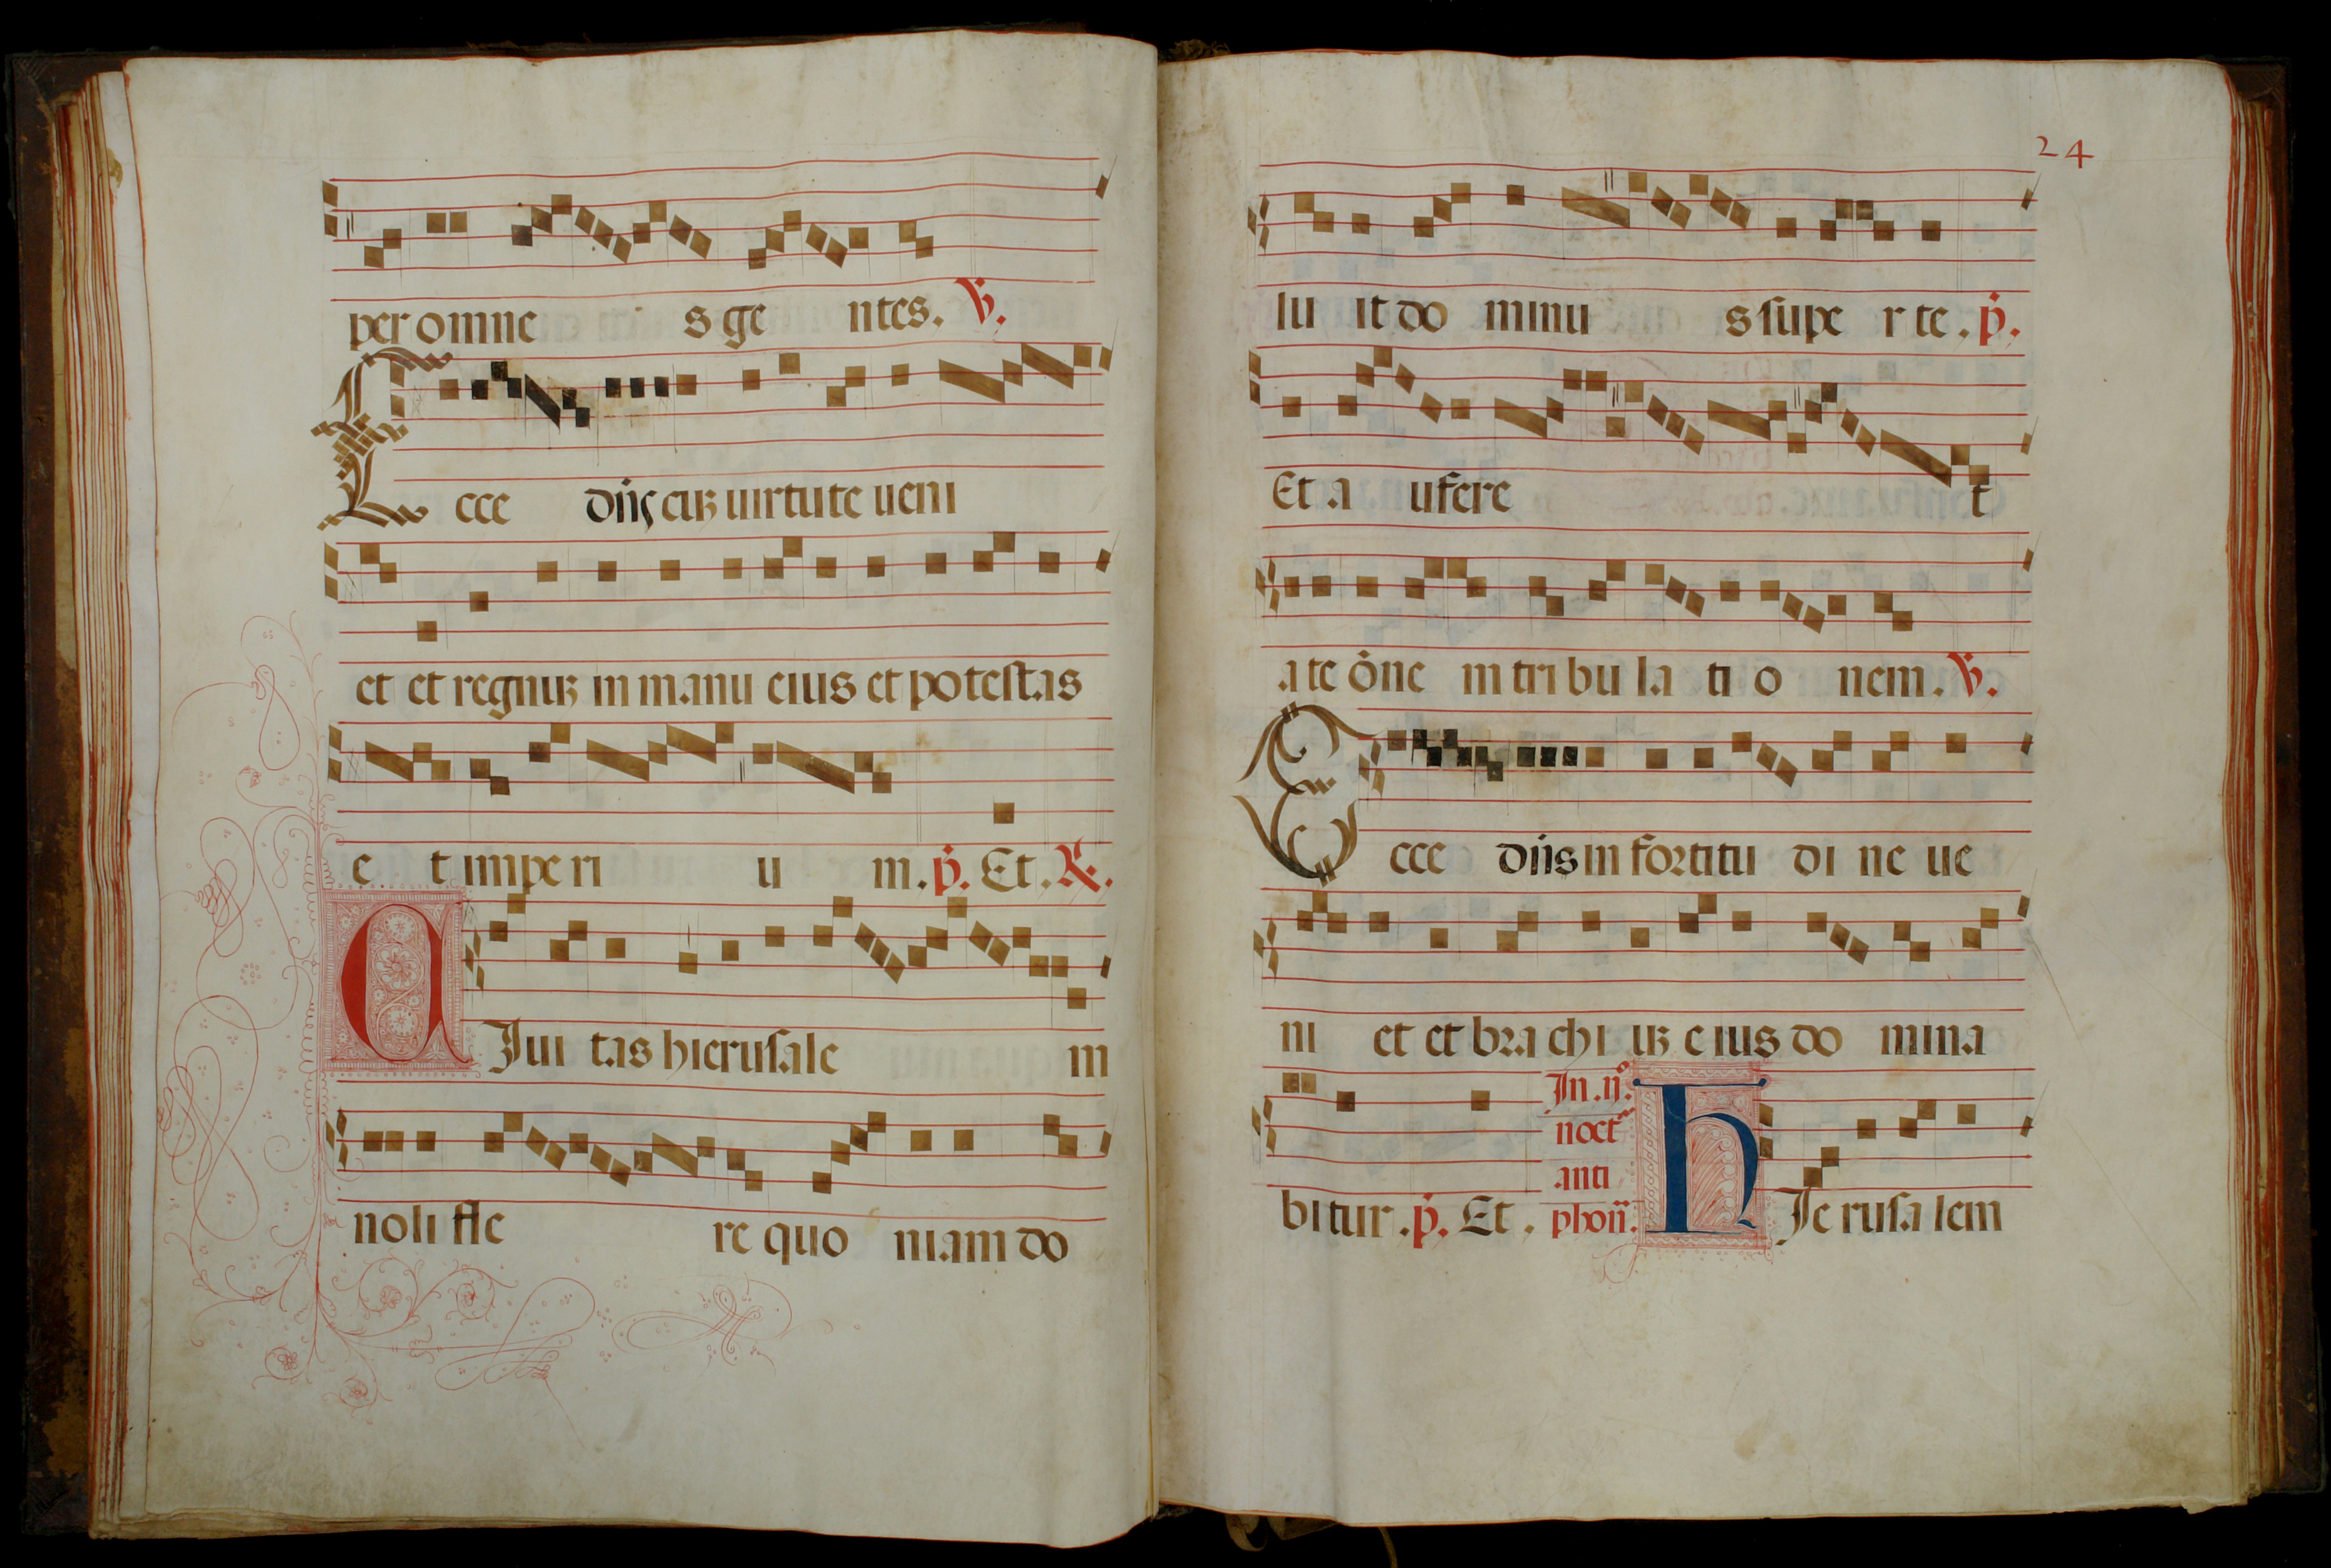 per omne s ge ntes. ℣.
Ecce dñs cuȝ uirtute ueni
et et regnuȝ in manu eius et potestas
e t imperi u m. p̄. Et. ℟.
CIui tas hierusale m
noli fle re quo niam do
24
lu it do minu s supe r te. p̄.
Et a ufere t
a te ōne m tri bu la ti o nem. ℣.
Ecce dñs in fortitu di ne ue
ni et et bra chi uȝ eius do mina
bitur. p̄. Et.
In .ij.º
noct
anti
phoñ.
hIe rusa lem